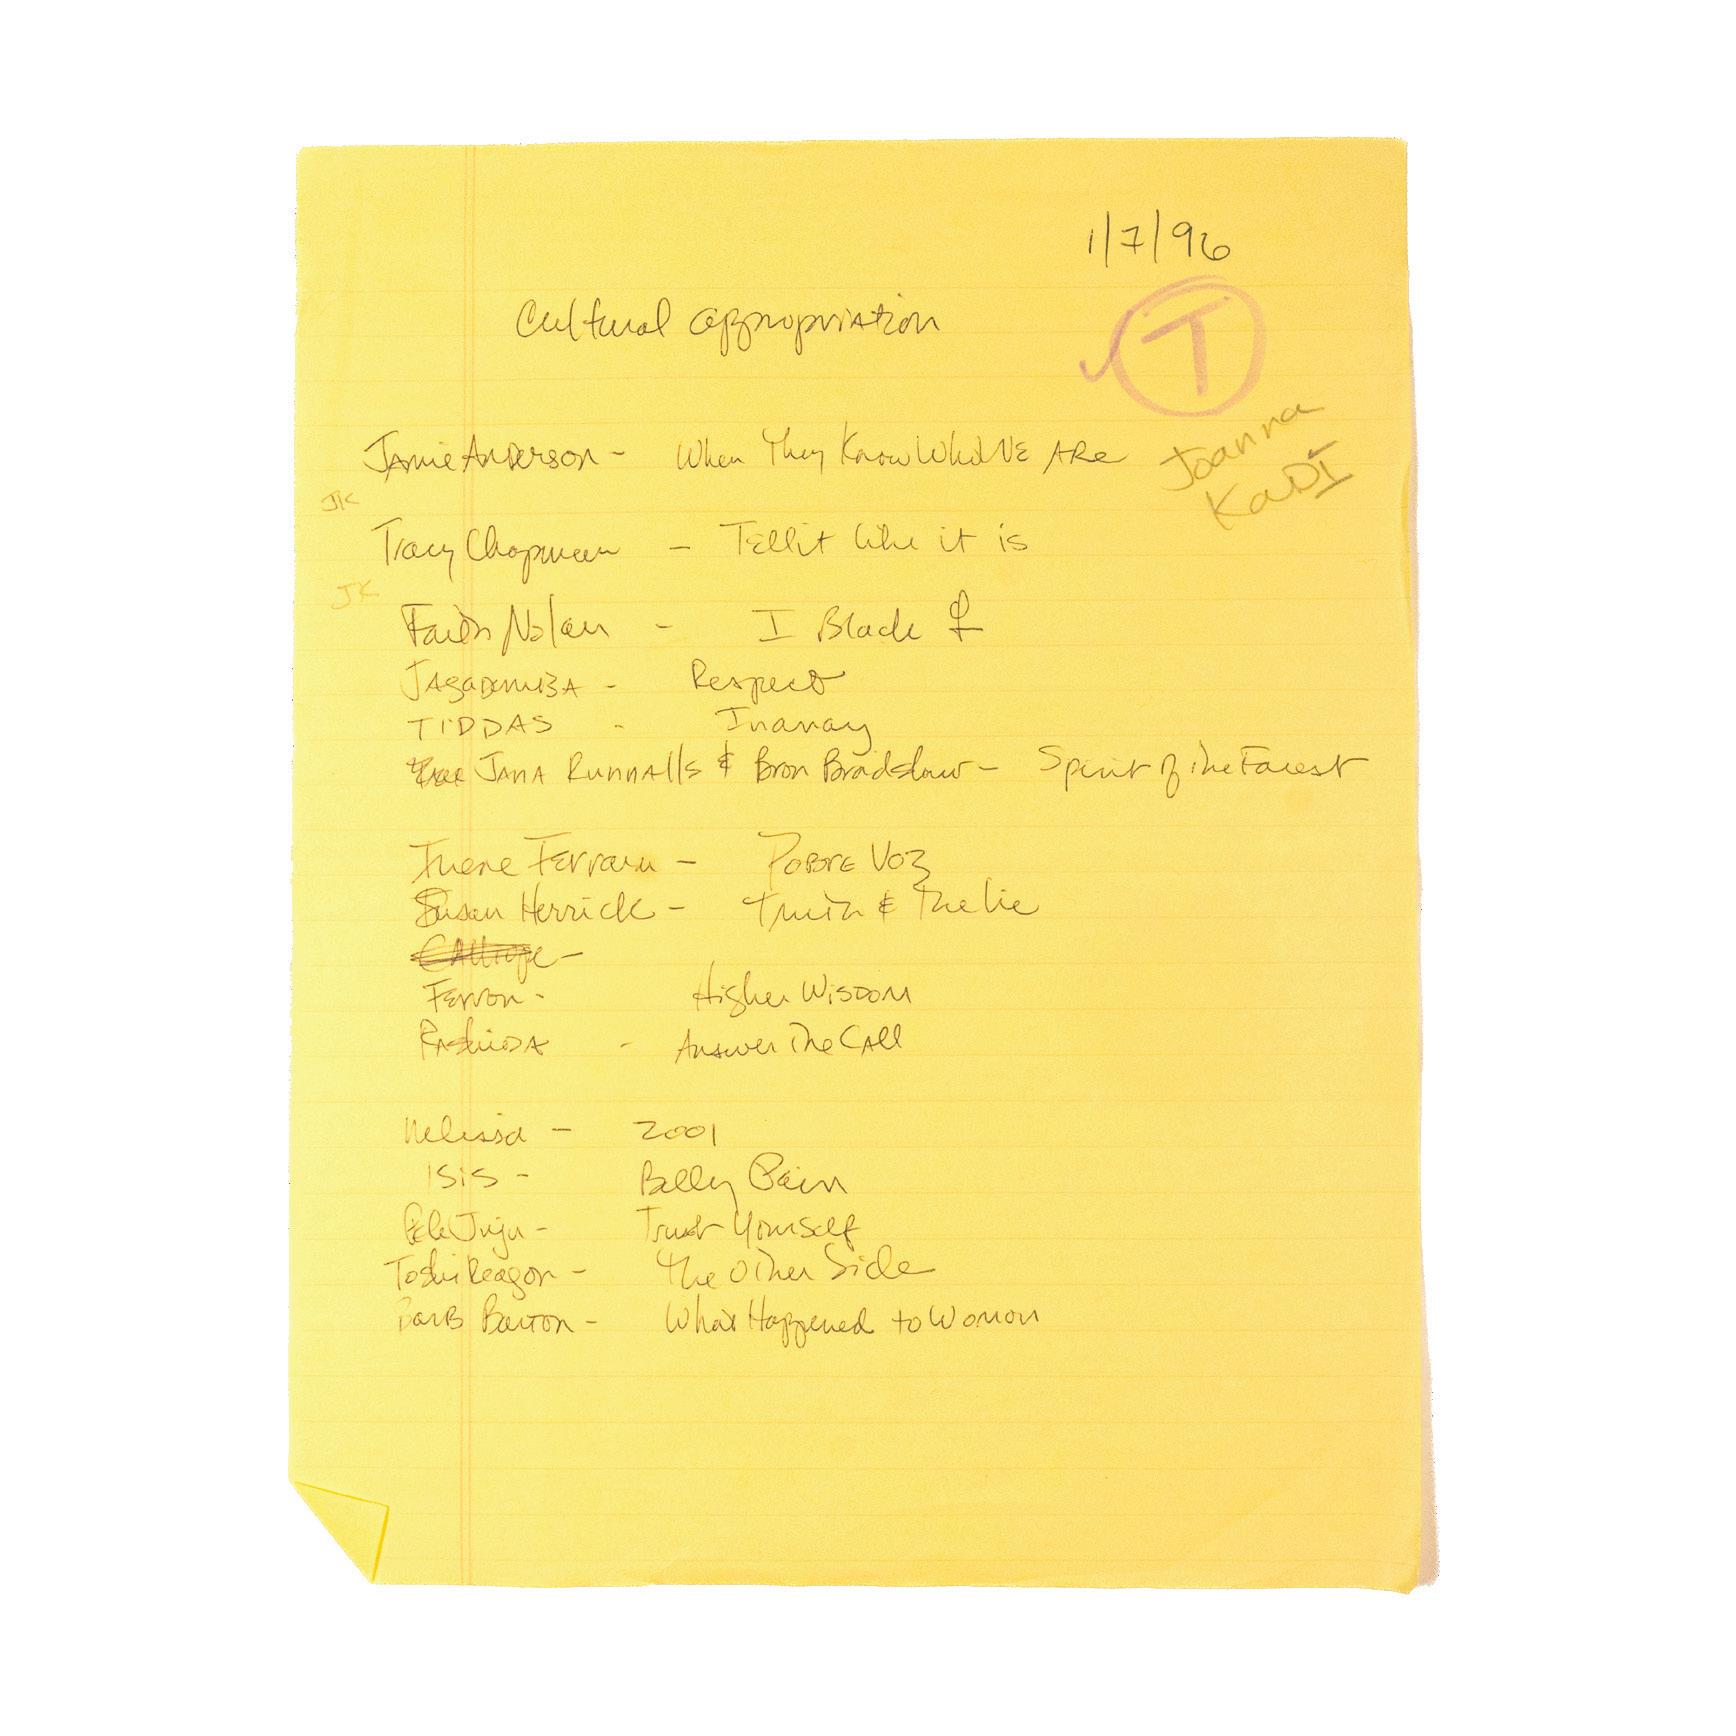 1/7/96
Cultural appropriation
T
Joanna
KaDI
Jamie Anderson - When They Know Who WE ARe
JK
Tracy Chapman - Tell it like it is
JK
Faith Nolan - I Black ♀
JAgaDamBA - Respect
TIDDAS - Inanay
JANA RunnAlls & Bron Bradshaw - Spirit of the Forest
Irene Ferrara - PoBRE Voz
Susan Herrick - Truth & The lie
CAlliope -
Ferron - Higher WisDom
RashiDA - Answer The CAll
Melissa - 2001
ISiS - Belly Pain
Ele Juju - Trust Yourself
Toshi Reagon - The Other Side
BarB Barton - What Happened to Womon